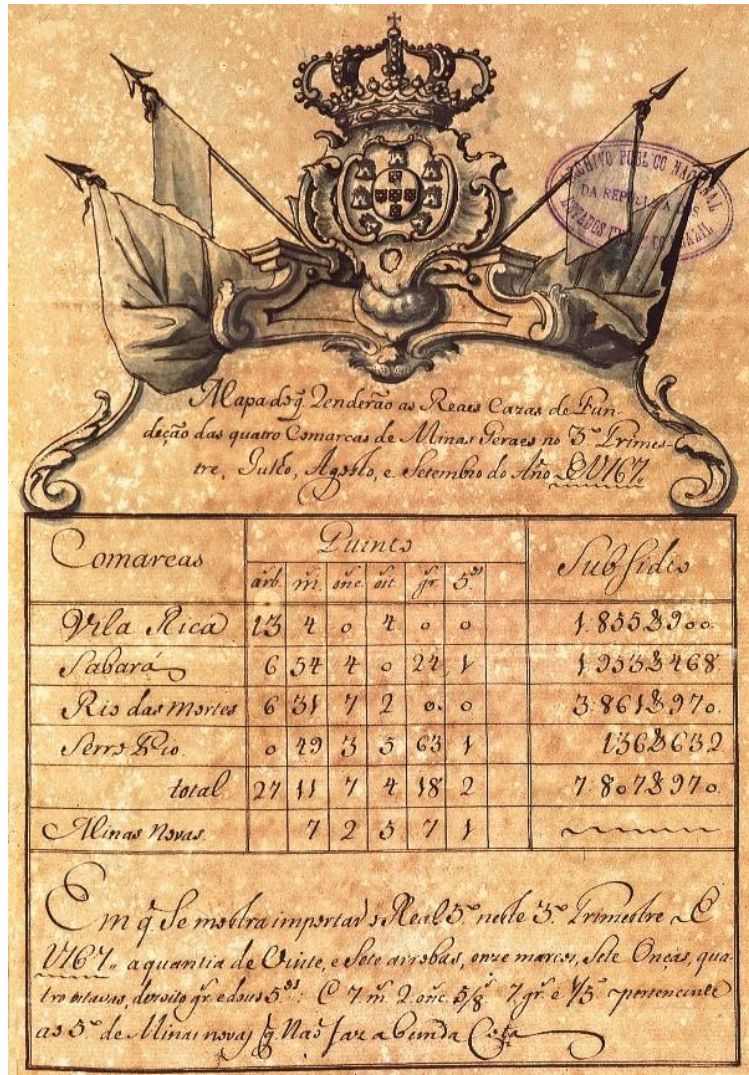 ARCHIVO PUBLICO NACIONAL
DA REPUBLICA DOS
ESTADOS UNIDOS DO BRAZIL
Mapa do q̃ Renderão as Reaes Cazas de Fun-
deção das quatro Comarcas de Minas Geraes no 3.º Trimes-
tre, Julho, Agosto, e Setembro do Año De 1767.
Comarcas Quinto Subsidio
arb. m. onc. oit. gr. 5.ºs
Vila Rica 13 4 0 4 0 0 1.855$900.
Sabará 6 54 4 0 24 1 1.953$468
Rio das Mortes 6 31 7 2 0. 0 3.861$970.
Serro Frio. 0 49 3 5 63 1 136$632
total 27 11 7 4 18 2 7.807$970.
Minas Novas. 7 2 5 7 1
Em q̃ Se mostra importar o Real 5.º neste 3.º Trimestre De
1767. a quantia de Vinte, e Sete arrobas, onze marcos, Sete Onças, qua-
tro oitavas, dezoito gr. e dous 5.ºs: E 7 m. 2 onc. 5/8 7 gr. e 1/5.º pertencente
ao 5.º de Minas novas q̃ Não faz a